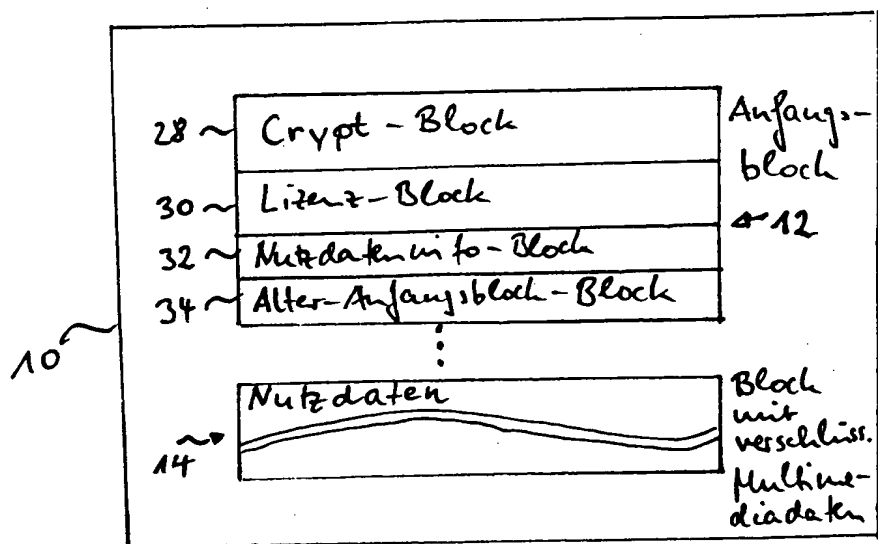 28 ~ Crypt-Block
Anfangs-
block
30 ~ Lizenz-Block
12
32 ~ Nutzdateninfo-Block
34 ~ Alter-Anfangsblock-Block
10
Nutzdaten
14
Block
mit
verschlüss.
Multime-
diadaten